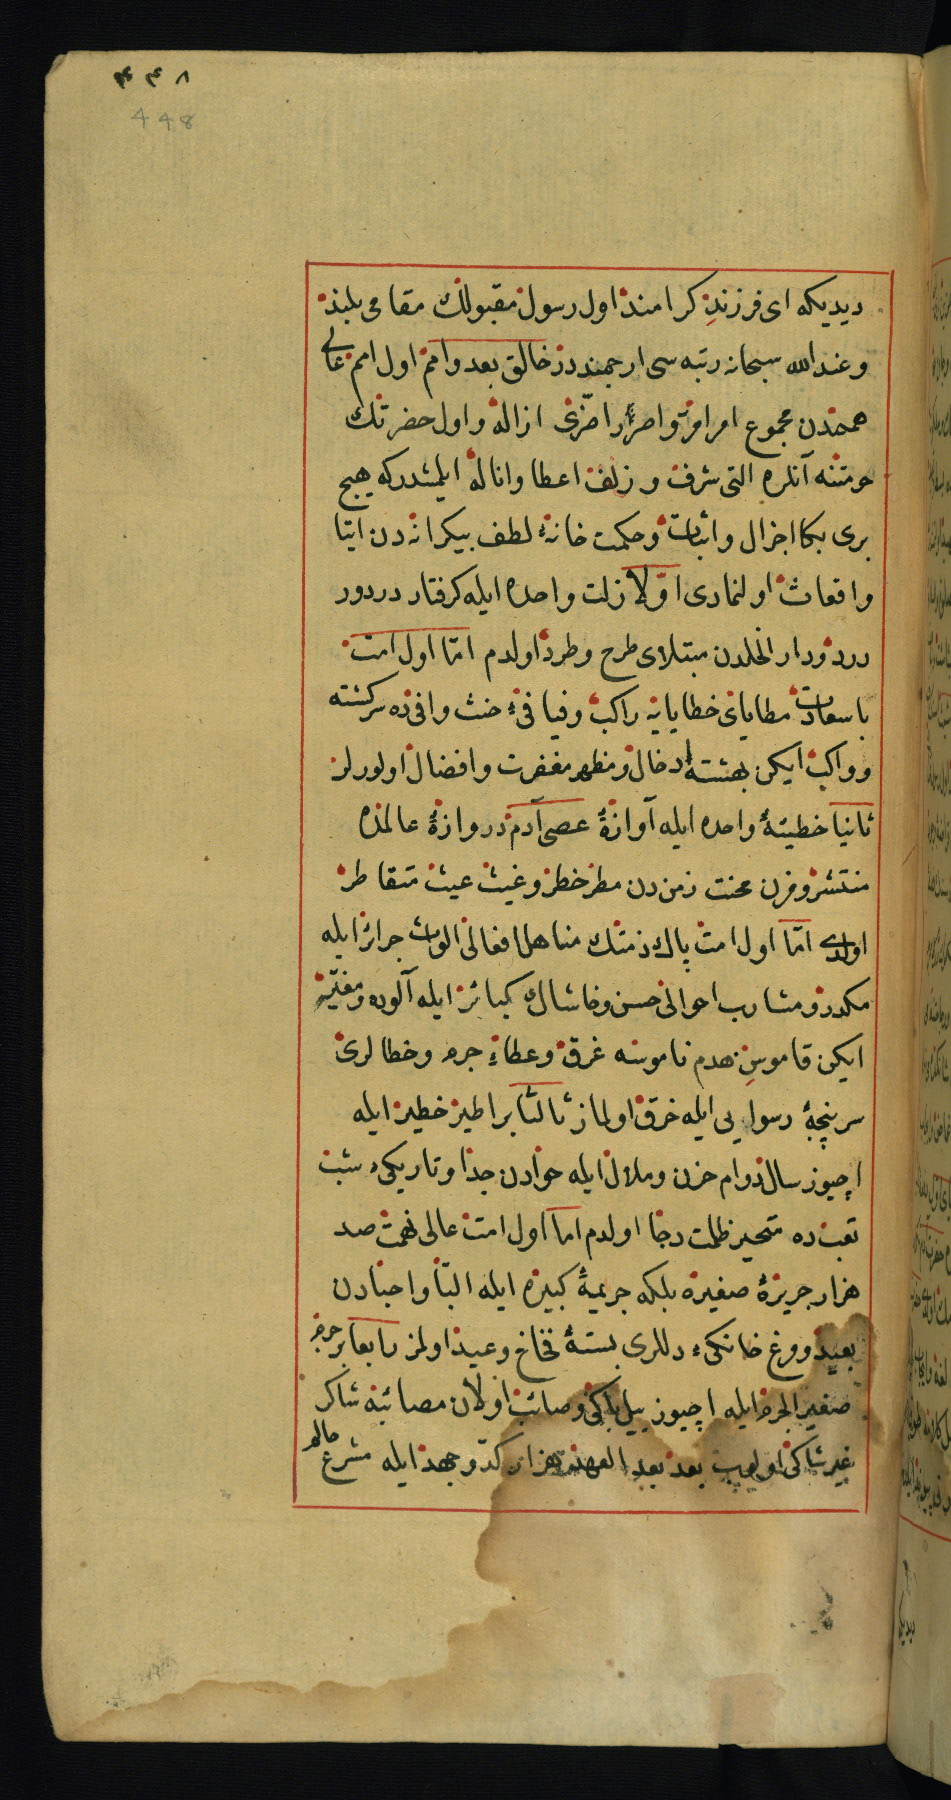 ۴۴۸
448
دیدیکه ای فرزندِ کرامند اول رسول مقبولنك مقامی بلند
وعندالله سبحانه رتبه سی ارجمنددر خالق بعد وامم اول امم عالی
همتدن مجموع امر امرّ واصرار اضرّی ازاله و اول حضرتك
حرمتنه آنلره التی شرف و زلف اعطا وانالۀ ایلمشدرکه هیچ
بری بکا اجزال واثبات وحکمت خانۀ لطف بیکرانه دن ایتا
وافعاث اولنمادی اوّلا زلت واحده ایله کرفتار درد ور
درد ودار الخلدن مبتلای طرح وطرد اولدم امّا اول امت
با سعادت مطایای خطایایه راکب وفیافیٔ حنث وافیده سرکشته
وواکب ایکن بهشته ادخال ومظهر مغفرت وافضال اولورلر
ثانیا خطیئۀ واحده ایله آوازۀ عصی آدم دروازۀ عالمده
منتشر ومزن محنت زمن دن مطر خطر وغیث عیث متقاطر
اولدی امّا اول امت پاك ذمتك مناهل افعالی الواث جرائر ایله
مکدر ومشارب احوالی خس وخاشاك کبائر ایله آلوده ومغیّر
ایکن قاموسِ هدم ناموسه غرق وعطاءِ جرم وخطالری
سر پنچۀ رسوایی ایله خرق اولماز ثالثا بر اطیر خطیر ایله
اچیوز سال دوام حزن وملال ایله حوادن جدا وتاریکیٔ شب
تعب ده متحیر ظلمت دجا اولدم اما اول امت عالی نهمت صد
هزار جریرۀ صغیره بلکه جریمۀ کبیره ایله البّا واحبادن
بعید وورغ خانکیٔ دللری بستۀ فخاخ وعید اولمز رابعا بر جرم
صغیر الجرم ایله اچیوز ییل باکی وصائب اولان مصائبه شاکر
غیر شاکی اولوب بعد بعد العهد هزار کدّ وجهد ایله مشرع حالم